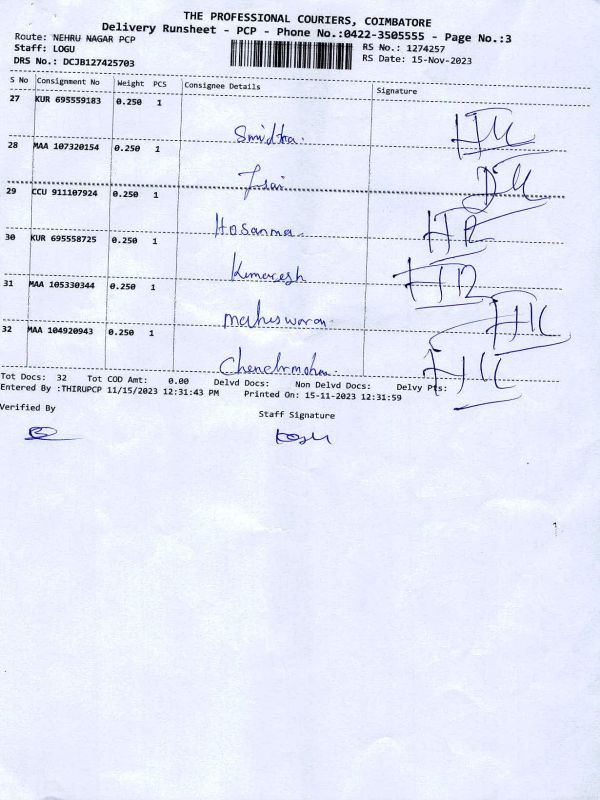 THE PROFESSIONAL COURIERS, COIMBATORE
Delivery Runsheet - PCP - Phone No.:0422-3505555 - Page No.:3
Route: NEHRU NAGAR PCP
RS No.: 1274257
Staff: LOGU
RS Date: 15-Nov-2023
DRS No.: DCJB127425703
S No Consignment No Weight PCS Consignee Details Signature
27 KUR 695559183 0.250 1
28 MAA 107320154 0.250 1
29 CCU 911107924 0.250 1
Hosanma.
30 KUR 695558725 0.250 1
Kumaresh
31 MAA 105330344 0.250 1
maheswaran
32 MAA 104920943 0.250 1
Tot Docs: 32 Tot COD Amt: 0.00 Delvd Docs: Non Delvd Docs: Delvy Pts:
Entered By :THIRUPCP 11/15/2023 12:31:43 PM Printed On: 15-11-2023 12:31:59
Verified By
Staff Signature